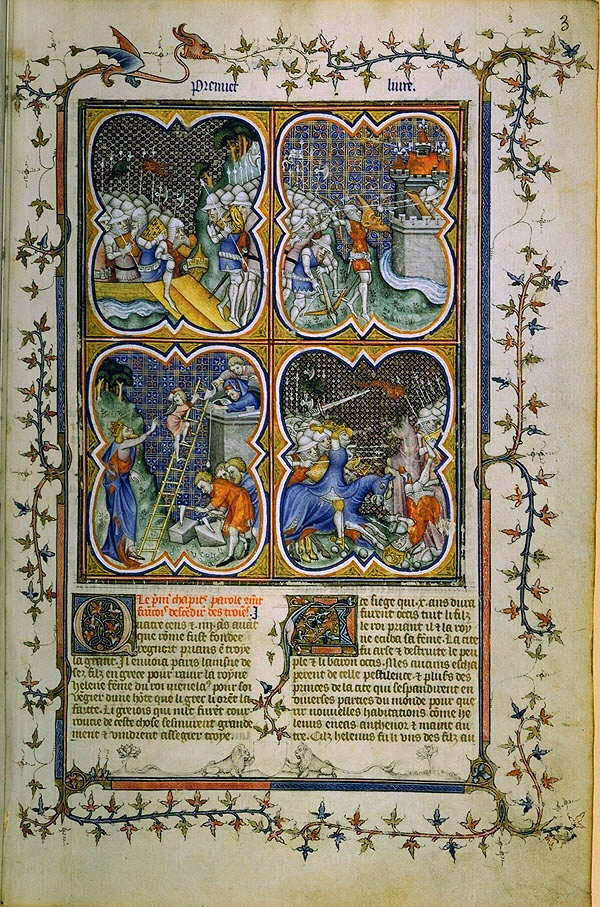 3
Premier livre.
Le pmͬ chapitᵉ parole cͦmt
francoiˢ descēdirͭ des troiēs.
uatre cens et .iiij. ans auāt
que rōme fust fondee
regnoit prians ē troye
la grant. Il enuoia paris lainsne de
ses filz en grece pour rauir la royne
helene fēme du roi menelaˢ pour soy
vēgier dune hōte que li grec li orēt ia
faitte. Li gregois qui mlt̄ furēt cour
roucie de ceste chose sesmurent grande
ment & vindrent asseger troye.
ce siege qui .x. ans dura
furent occis tuit li filz
le roi priant il & la roy
ne ecuba sa fēme. La cite
fu arse et destruite le peu
ple & li baron occis. Mes aucuns escha
perent de celle pestilence & plusͬs des
princes de la cite qui sespandirent en
diuerses parties du monde pour que
rir nouuelles habitations cōme he
lenus eneas anthenor & maint au
tre. Cilz helenus fu li uns des filz au